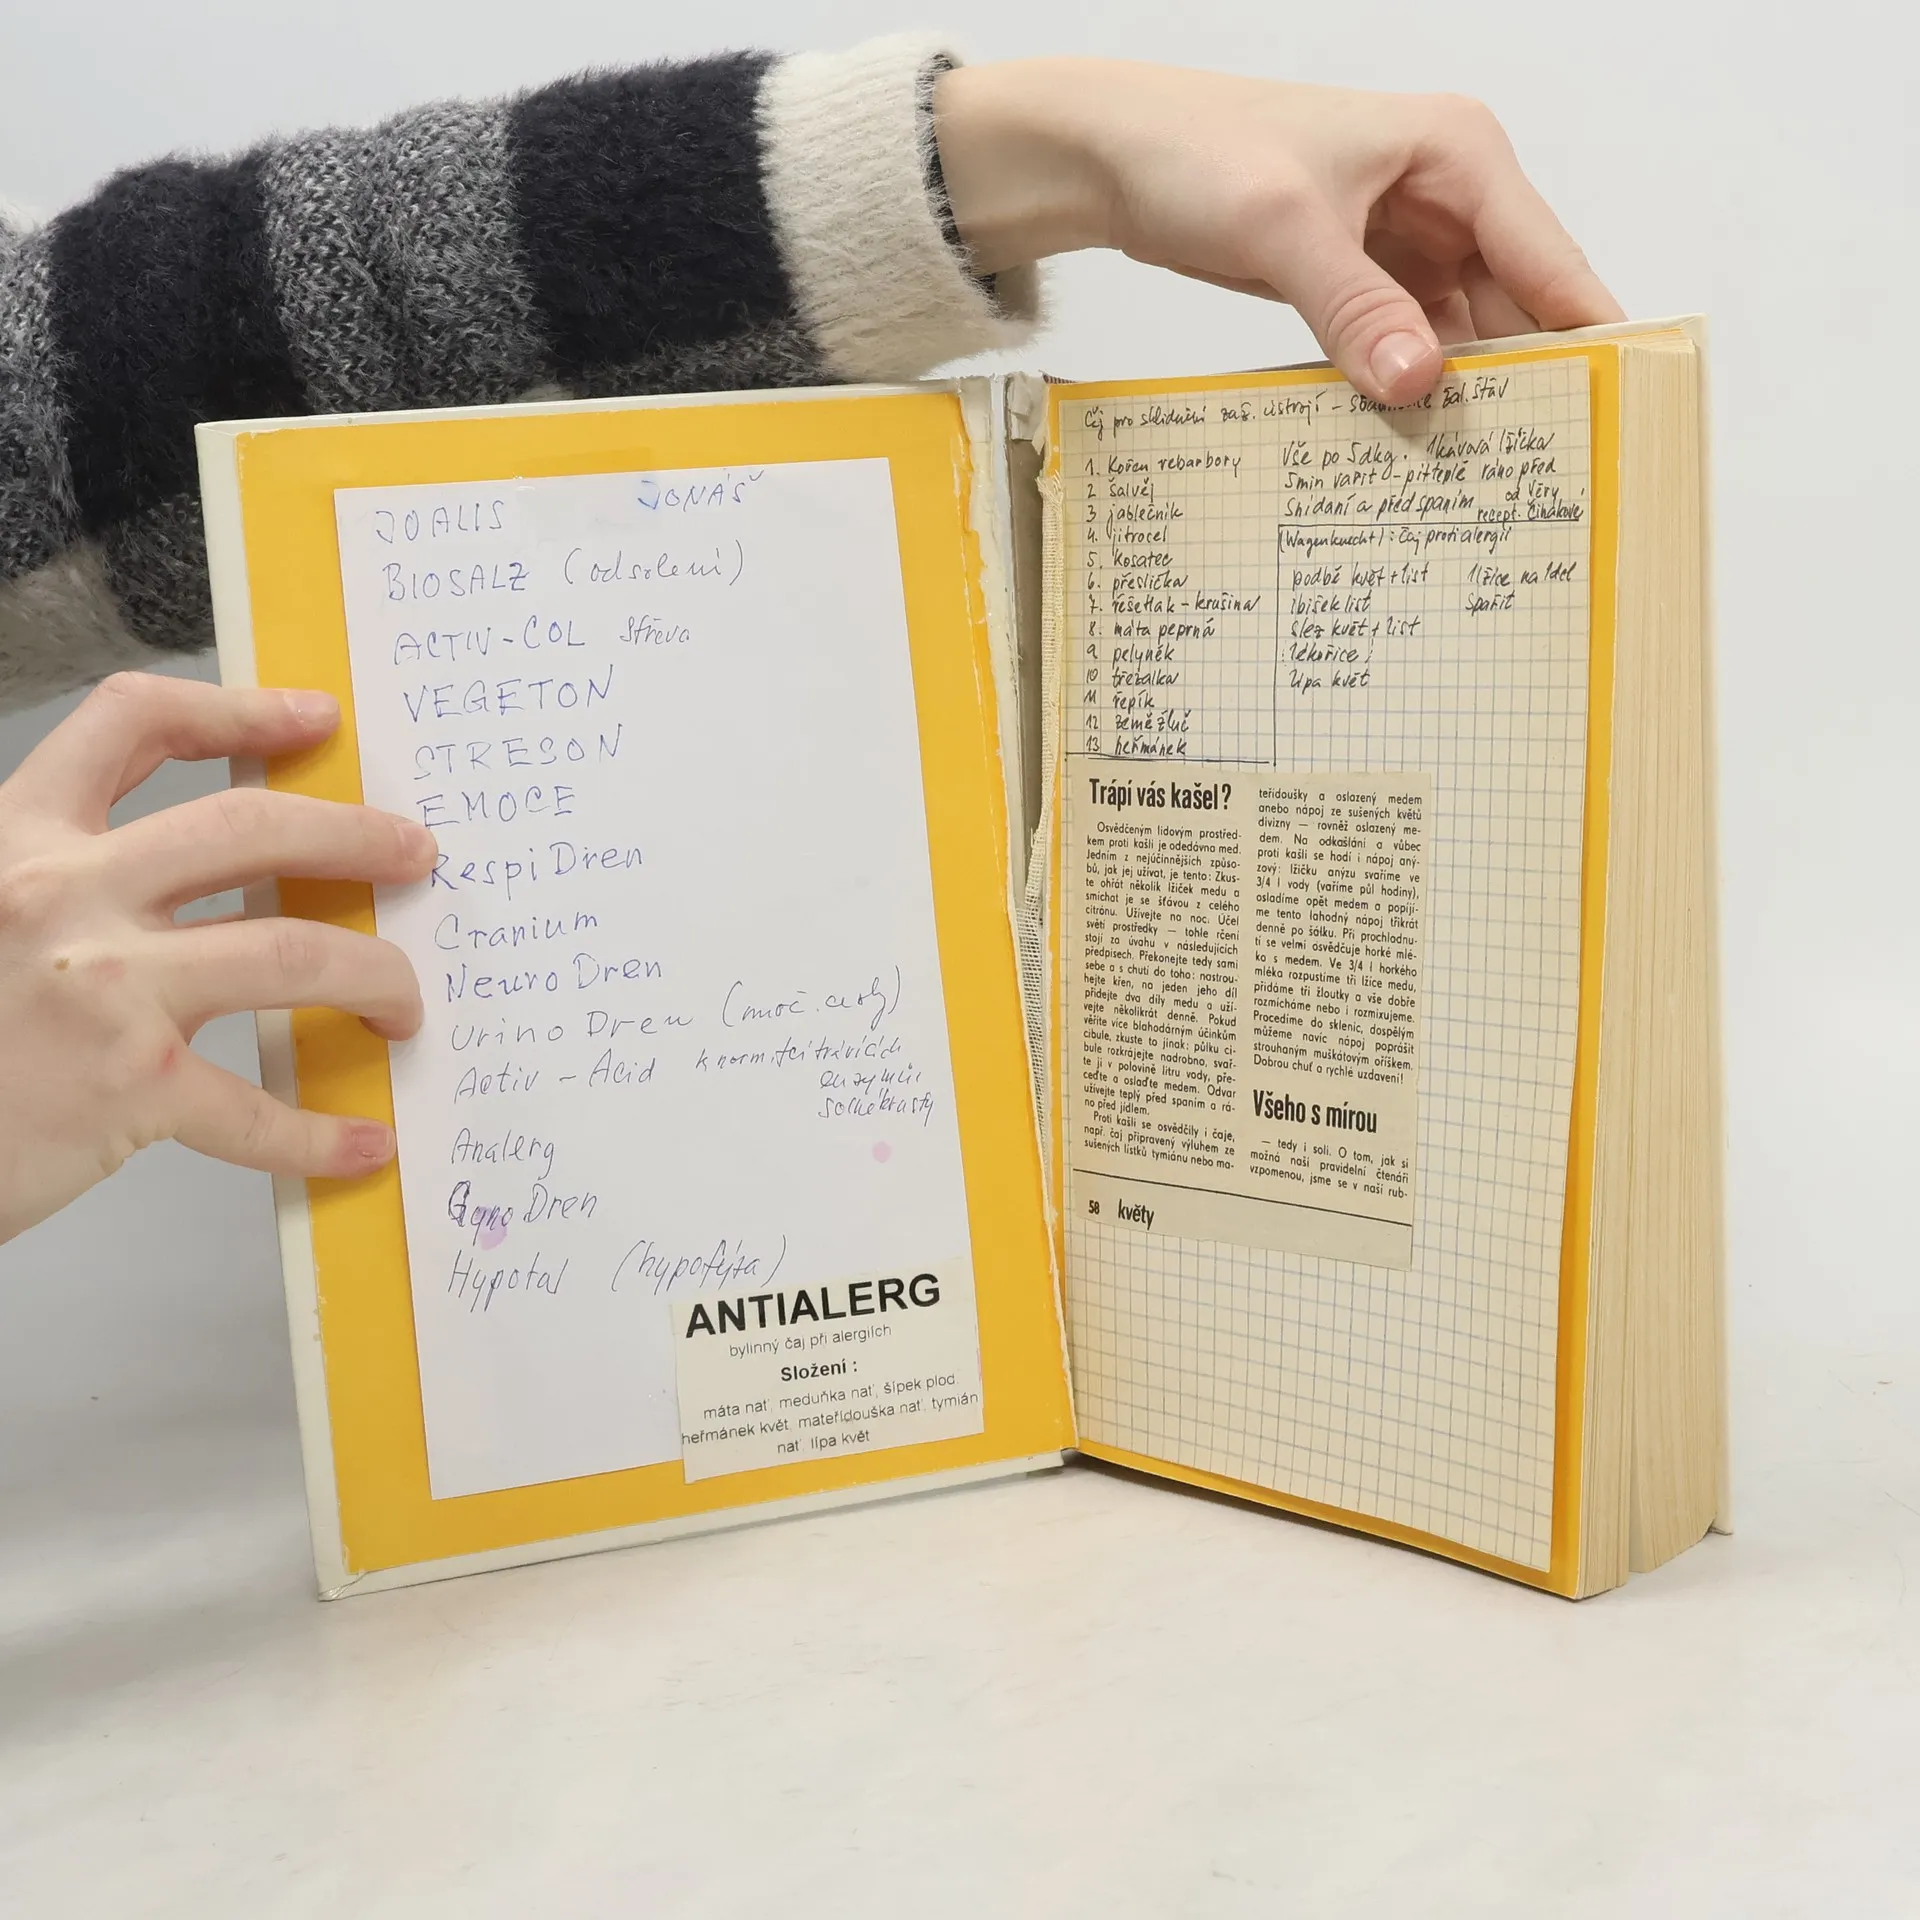 JOALIS JONÁŠ
BIOSALZ (odsolení)
ACTIV-COL střeva
VEGETON
STRESON
EMOCE
RespiDren
Cranium
NeuroDren
UrinoDren (moč. cesty)
Activ - Acid k norm. trávících
enzymů
Analerg
GynoDren
Hypotal (hypofýza)
ANTIALERG
bylinný čaj při alergiích
Složení :
máta nať, meduňka nať, šípek plod,
heřmánek květ, mateřídouška nať, tymián
nať, lípa květ
Čaj pro sklidnění zaž. ústrojí - žal. šťáv
1. Kořen rebarbory
2 šalvěj
3 jablečník
4. jitrocel
5. kosatec
6. přeslička
7. řešetlak - krušina
8. máta peprná
9 pelyněk
10 třezalka
11 řepík
12 zeměžluč
13 heřmánek
Vše po 5dkg. 1kávová lžička
5min vařit - pít teplé ráno před
snídaní a před spaním od Věry
recept. Čihákové
(Wagenknecht): čaj proti alergii
podběl květ + list 1lžíce na 1del
ibišek list spařit
slez květ + list
lékořice
lípa květ
Trápí vás kašel?
Osvědčeným lidovým prostřed-
kem proti kašli je odedávna med.
Jedním z nejúčinnějších způso-
bů, jak jej užívat, je tento: Zkus-
te ohřát několik lžiček medu a
smíchat je se šťávou z celého
citrónu. Užívejte na noc. Účel
světí prostředky — tohle rčení
stojí za úvahu v následujících
předpisech. Překonejte tedy sami
sebe a s chutí do toho: nastrou-
hejte křen, na jeden jeho díl
přidejte dva díly medu a uží-
vejte několikrát denně. Pokud
věříte více blahodárným účinkům
cibule, zkuste to jinak: půlku ci-
bule rozkrájejte nadrobno, svař-
te ji v polovině litru vody, pře-
ceďte a oslaďte medem. Odvar
užívejte teplý před spaním a rá-
no před jídlem.
Proti kašli se osvědčily i čaje,
např. čaj připravený výluhem ze
sušených lístků tymiánu nebo ma-
teřídoušky a oslazený medem
anebo nápoj ze sušených květů
divizny — rovněž oslazený me-
dem. Na odkašlání a vůbec
proti kašli se hodí i nápoj aný-
zový: lžičku anýzu svaříme ve
3/4 l vody (vaříme půl hodiny),
osladíme opět medem a popíjí-
me tento lahodný nápoj třikrát
denně po šálku. Při prochladnu-
tí se velmi osvědčuje horké mlé-
ko s medem. Ve 3/4 l horkého
mléka rozpustíme tři lžíce medu,
přidáme tři žloutky a vše dobře
rozmícháme nebo i rozmixujeme.
Procedíme do sklenic, dospělým
můžeme navíc nápoj poprášit
strouhaným muškátovým oříškem.
Dobrou chuť a rychlé uzdravení!
Všeho s mírou
— tedy i soli. O tom, jak si
možná naši pravidelní čtenáři
vzpomenou, jsme se v naší rub-
58 květy